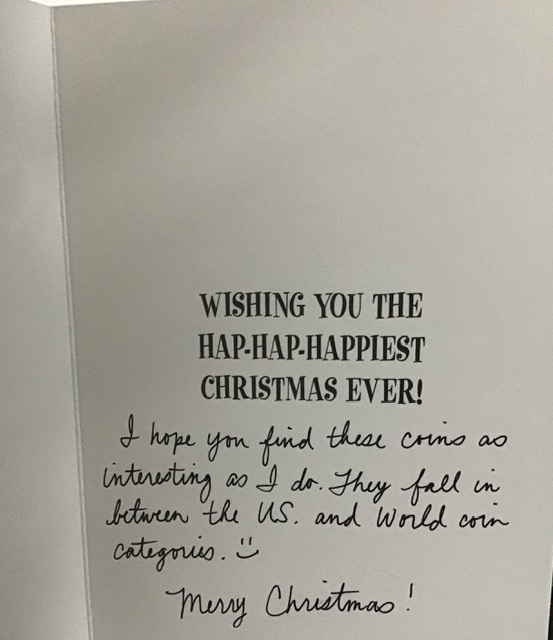 WISHING YOU THE
HAP-HAP-HAPPIEST
CHRISTMAS EVER!
I hope you find these coins as
interesting as I do. They fall in
between the US. and World coin
categories. 
Merry Christmas!